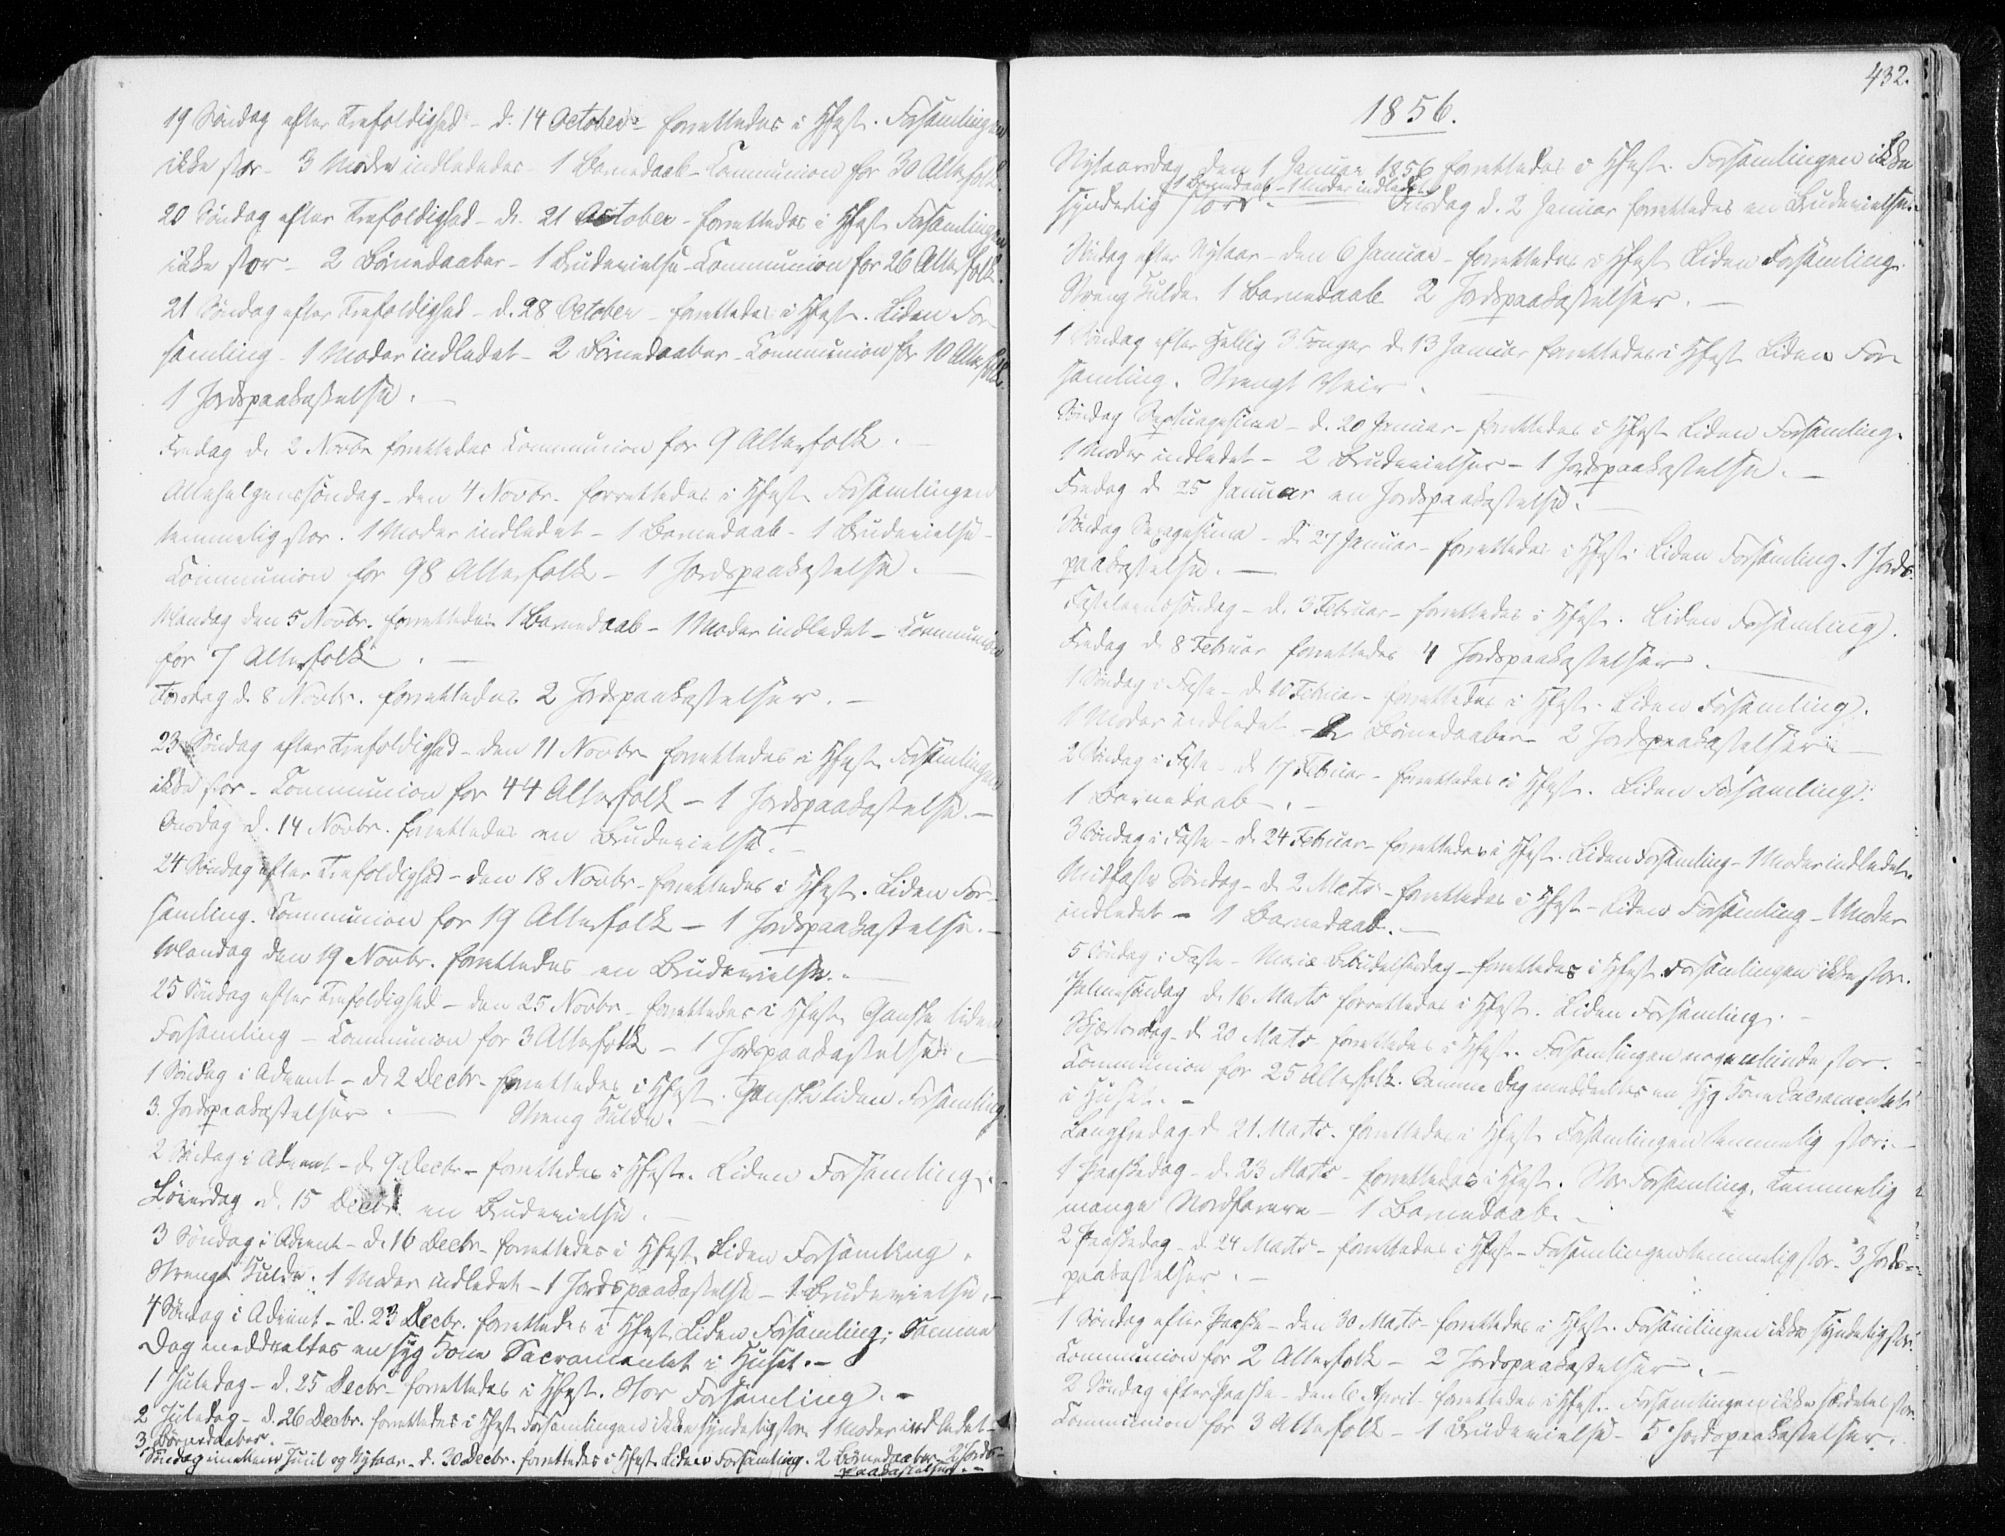 19 Søndag efter Trefoldighed - d. 14 October - forrettedes i Hfest. Forsamlingen
ikke stor - 3 Mødre indlededes - 1 Barnedaab - Communion for 30 Alterfolk.
20 Søndag efter Trefoldighed - d. 21 October - forrettedes i Hfest Forsamlingen
ikke stor - 2 Børnedaaber - 1 Brudevielse - Communion for 26 Alterfolk.
21 Søndag efter Trefoldighed - d. 28 October - forrettedes i Hfest. Liden For-
samling - 1 Moder indledet - 2 Børnedaaber - Communion for 10 Alterfolk
1 Jordspaakastelse. -
Fredag d. 2 Novbr forrettedes Communion for 9 Alterfolk. -
Allehelgenssøndag - den 4 Novbr. forrettedes i Hfest Forsamlingen
temmelig stor. 1 Moder indledet - 1 Barnedaab - 1 Brudevielse -
Communion for 98 Alterfolk - 1 Jordspaakastelse. -
Mandag den 5 Novbr. forrettedes 1 Barnedaab - 1 Moder indledet - Communion
for 7 Alterfolk. -
Torsdag d. 8 Novbr. forrettedes 2 Jordspaakastelser. -
23 Søndag efter Trefoldighed - den 11 Novbr forrettedes i Hfest Forsamlingen
ikke stor - Communion for 44 Alterfolk - 1 Jordspaakastelse. -
Onsdag d. 14 Novbr. forrettedes en Brudevielse. -
24 Søndag efter Trefoldighed - den 18 Novbr - forrettedes i Hfest. Liden For-
samling. Communion for 19 Alterfolk - 1 Jordspaakastelse. -
Mandag den 19 Novbr. forrettedes en Brudevielse. -
25 Søndag efter Trefoldighed - den 25 Novbr - forrettedes i Hfest Ganske liden
Forsamling - Communion for 3 Alterfolk - 1 Jordspaakastelse. -
1 Søndag i Advent - d. 2 Decbr - forrettedes i Hfest. Ganske liden Forsamling.
3. Jordspaakastelser. - Streng Kulde. -
2 Søndag i Advent - d. 9 Decbr - forrettedes i Hfest. Liden Forsamling. -
Løverdag d. 15 Decbr. en Brudevielse. -
3 Søndag i Advent - d. 16 Decbr - forrettedes i Hfest. Liden Forsamling.
Streng Kulde. 1 Moder indledet - 1 Jordspaakastelse - 1 Brudevielse. -
4 Søndag i Advent - d. 23 Decbr. forrettedes i Hfest. Liden Forsamling; Samme
Dag meddeeltes en syg Kone Sacramentet i Huset. -
1 Juledag - d. 25 Decbr - forrettedes i Hfest. Stor Forsamling. -
2 Juledag - d. 26 Decbr. forrettedes i Hfest Forsamlingen ikke synderlig stor. 1 Moder indledet -
3 Børnedaaber. -
Søndag imellem Juul og Nytaar - d. 30 Decbr. forrettedes i Hfest Liden Forsamling. 2 Børnedaaber 2 Jords-
paakastelser. -
432.
1856.
Nytaarsdag den 1 Januar 1856 forrettedes i Hfest. Forsamlingen ikke
1 Barnedaab - 1 Moder indledet
synderlig stor. Onsdag d. 2 Januar forrettedes en Brudevielse.
Søndag efter Nytaar - den 6 Januar - forrettedes i Hfest Liden Forsamling.
Streng Kulde. 1 Barnedaab 2 Jordspaakastelser. -
1 Søndag efter Hellig 3 Konger d. 13 Januar forrettedes i Hfest Liden For-
samling. Strengt Veir. -
Søndag Septuagesima - d. 20 Januar - forrettedes i Hfest Liden Forsamling.
1 Moder indledet - 2 Brudevielser - 1 Jordspaakastelse. -
Fredag d. 25 Januar en Jordspaakastelse. -
Søndag Sexagesima - d. 27 Januar - forrettedes i Hfest. Liden Forsamling. 1 Jords-
paakastelse. -
Fastelavnssøndag - d. 3 Februar - forrettedes i Hfest. Liden Forsamling.
Fredag d. 8 Februar forrettedes 4 Jordspaakastelser. -
1 Søndag i Faste - d. 10 Februar - forrettedes i Hfest. Liden Forsamling.
1 Moder indledet - 2 Børnedaaber - 2 Jordspaakastelser. -
2 Søndag i Faste - d. 17 Februar - forrettedes i Hfest. Liden Forsamling.
1 Barnedaab. -
3 Søndag i Faste - d. 24 Februar - forrettedes i Hfest. Liden Forsamling - 1 Moder indledet.
Midfaste Søndag - d. 2 Marts - forrettedes i Hfest - Liden Forsamling - 1 Moder
indledet - 1 Barnedaab. -
5 Søndag i Faste - Mariæ Bebudelsesdag - forrettedes i Hfest Forsamlingen ikke stor.
Palmesøndag d. 16 Marts forrettedes i Hfest. Liden Forsamling. -
Skjærtorsdag - d. 20 Marts forrettedes i Hfest. Forsamlingen nogenlunde stor.
Communion for 25 Alterfolk. Samme Dag meddeeltes en syg Kone Sacramentet
i Huset. -
Langfredag d. 21 Marts. forrettedes i Hfest Forsamlingen temmelig stor. -
1 Paaskedag - d. 23 Marts - forrettedes i Hfest. Stor Forsamling. Temmelig
mange Nordfarere - 1 Barnedaab. -
2 Paaskedag - d. 24 Marts - forrettedes i Hfest - Forsamlingen temmelig stor. 3 Jords-
paakastelser. -
1 Søndag efter Paaske - den 30 Marts forrettedes i Hfest. Forsamlingen ikke synderlig stor.
Communion for 2 Alterfolk - 2 Jordspaakastelser. -
2 Søndag efter Paaske - den 6 April - forrettedes i Hfest. Forsamlingen ikke stor.
Communion for 3 Alterfolk - 1 Brudevielse - 5 Jordspaakastelser.